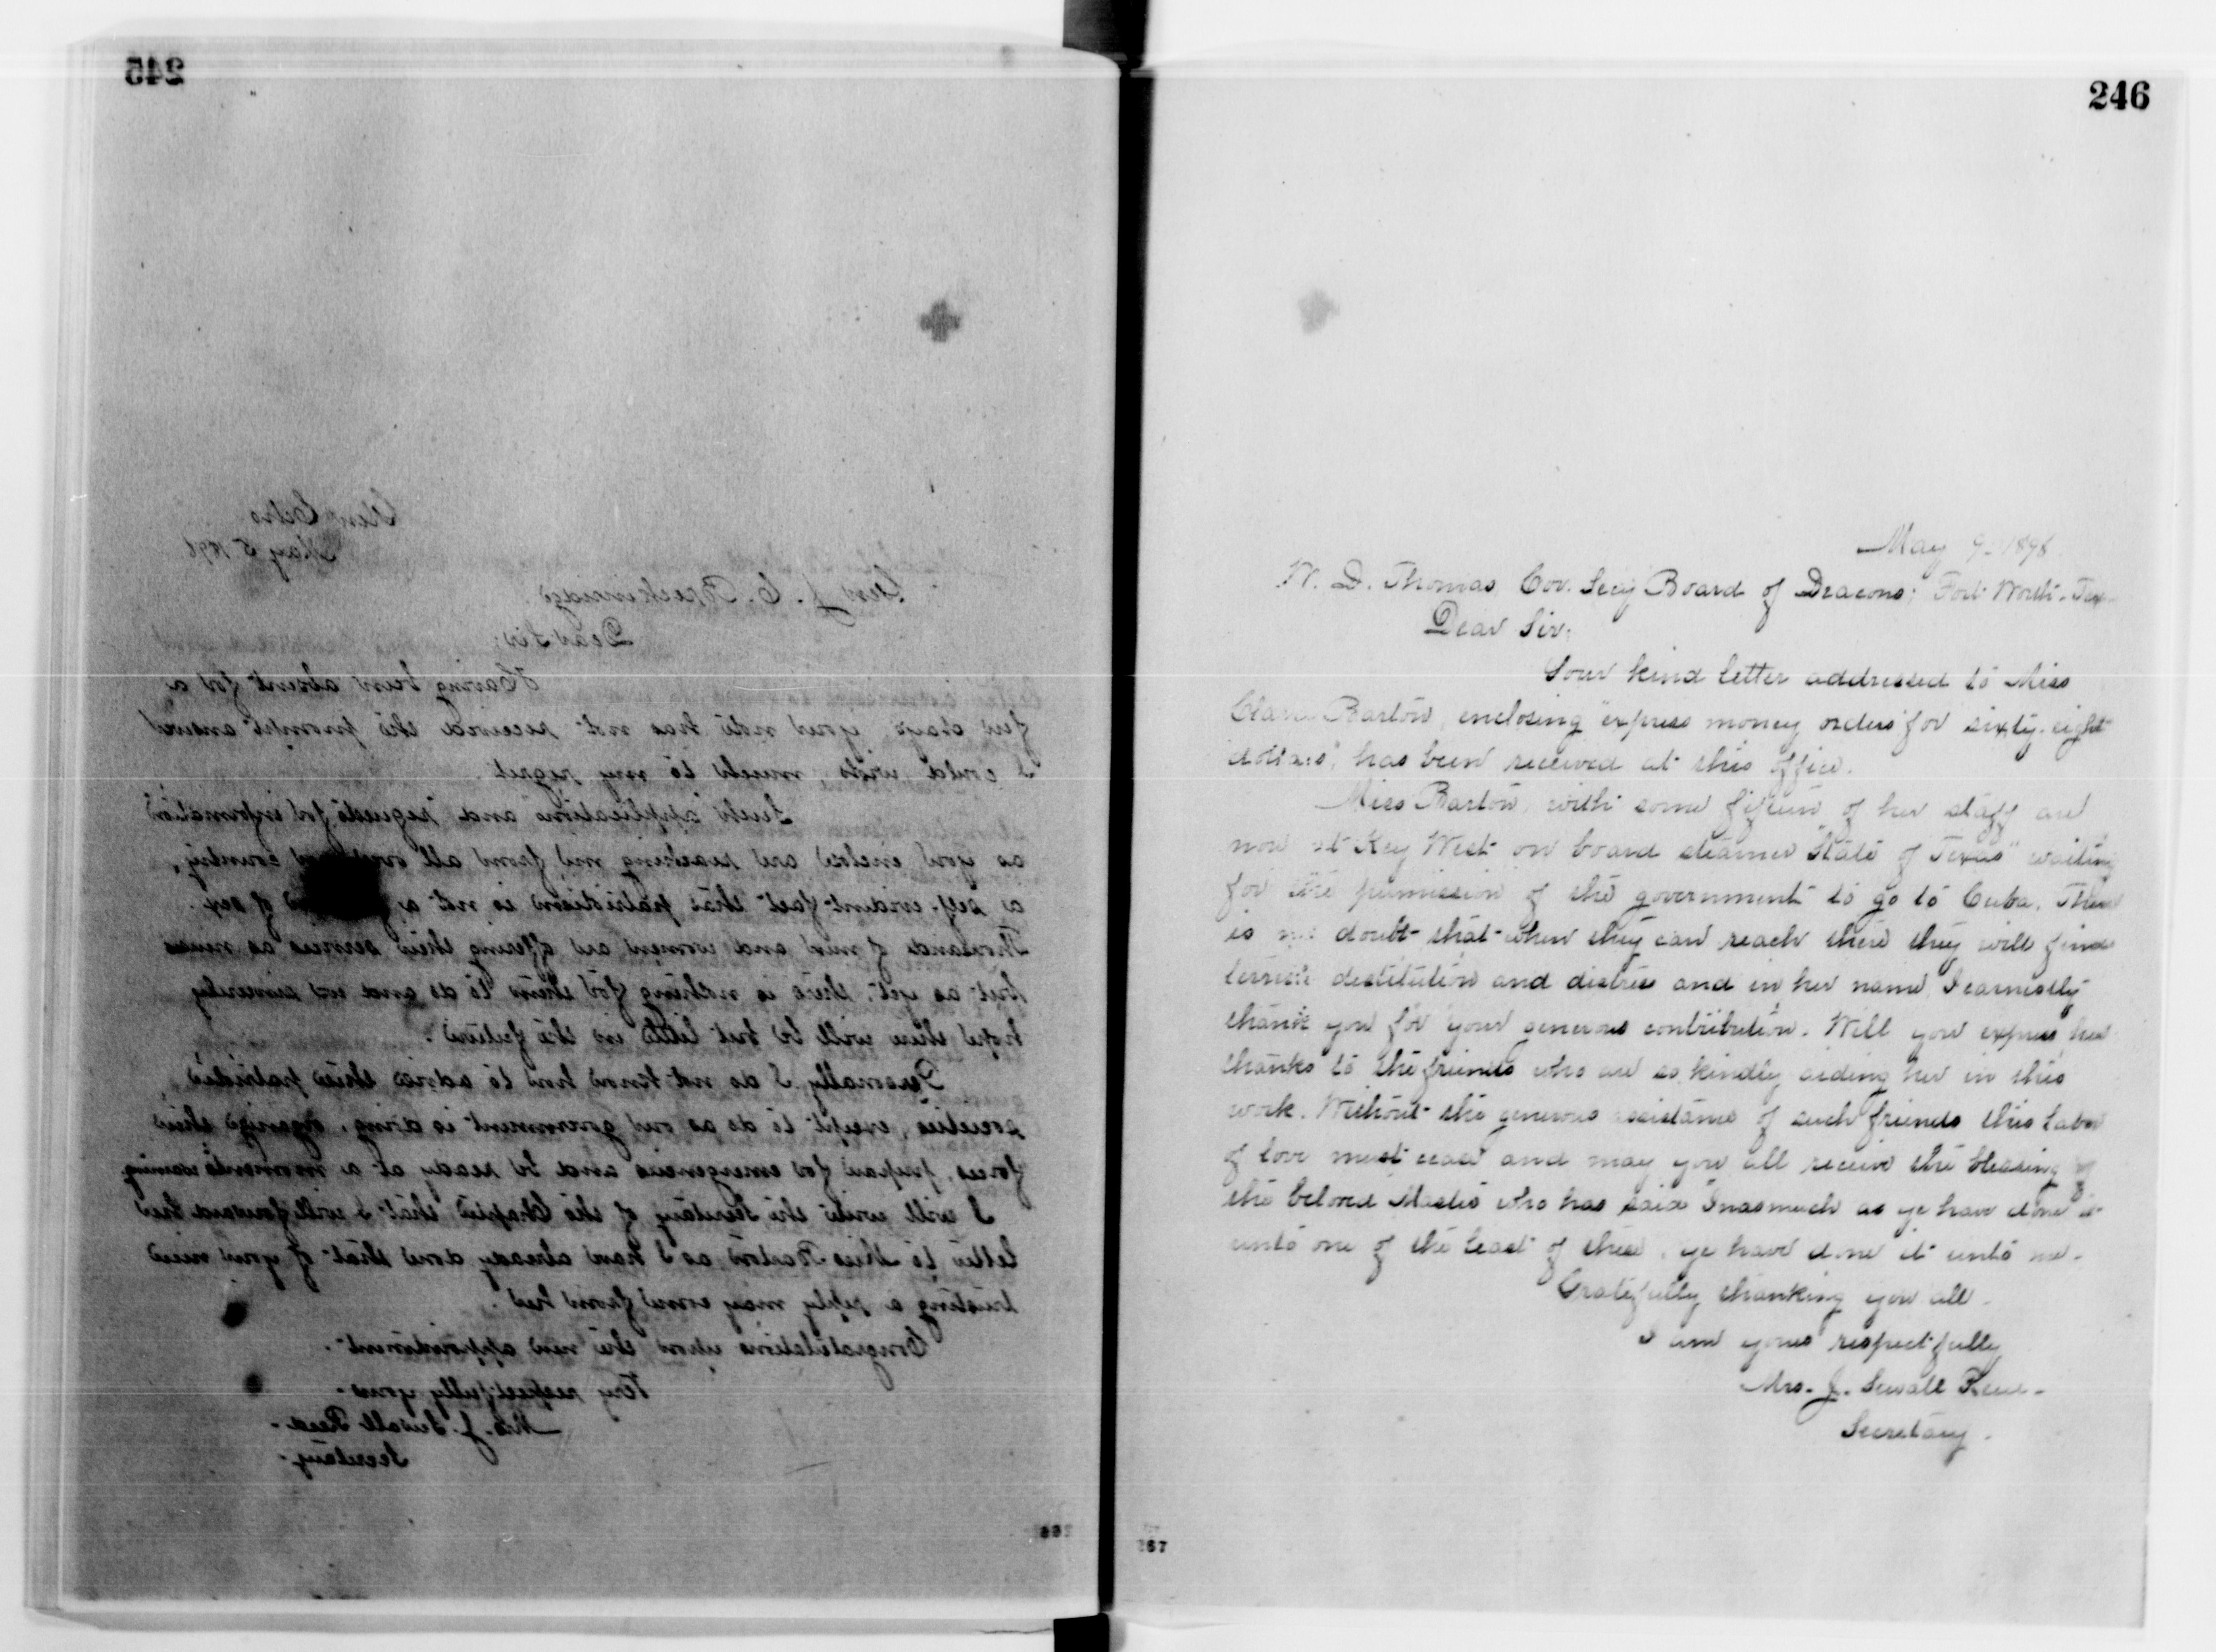 245
Glen Echo
May 8 1898
Gen J. C. Breckinridge
Dear Sir;
Having been absent for a
few days, your note has not received the prompt answer
I could wish, much to my regret.
Such applications and requests for information
as you enclose are reaching me from all over country,
a self-evident fact that patriotism is not a of sex.
Thousands of men and women are offering their services as nurses
but as yet, there is nothing for them to do and we sincerely
hope there will be but little in the future.
Personally I do not know how to advise these patriotic
societies, except to do as our government is doing, organize their
forces, prepare for emergencies and be ready at a moments warning
I will write the Secretary of the Chapter that I will forward her
letter to Miss Barton as I have already done that of your niece
trusting a reply may come from her.
Congratulations upon the new appointment.
Very respectfully yours-
Mrs. J. Sewall Reed-
Secretary-
266
246
May 9 1898
W. D. Thomas Cor. Secy Board of Deacons; Fort Worth-Tex-
Dear Sir;
Your kind letter addressed to Miss
Clara Barton, enclosing "express money orders for sixty-eight
dollars", has been received at this office.
Miss Barton, with some fifteen of her staff are
now at Key West on board steamer "State of Texas" waiting
for the permission of the government to go to Cuba. There
is no doubt that when they can reach there they will find
terrible destitution and distress and in her name, I earnestly
thank you for your generous contribution. Will you express her
thanks to the friends who are so kindly aiding her in this
work. Without the generous assistance of such friends this labor
of love must cease and may you all receive the blessing of
the beloved Master who has said "Inasmuch as ye have done it
unto one of the least of these, ye have done it unto me-
Gratefully thanking you all-
I am yours respectfully
Mrs. J. Sewall Reed-
Secretary.
267